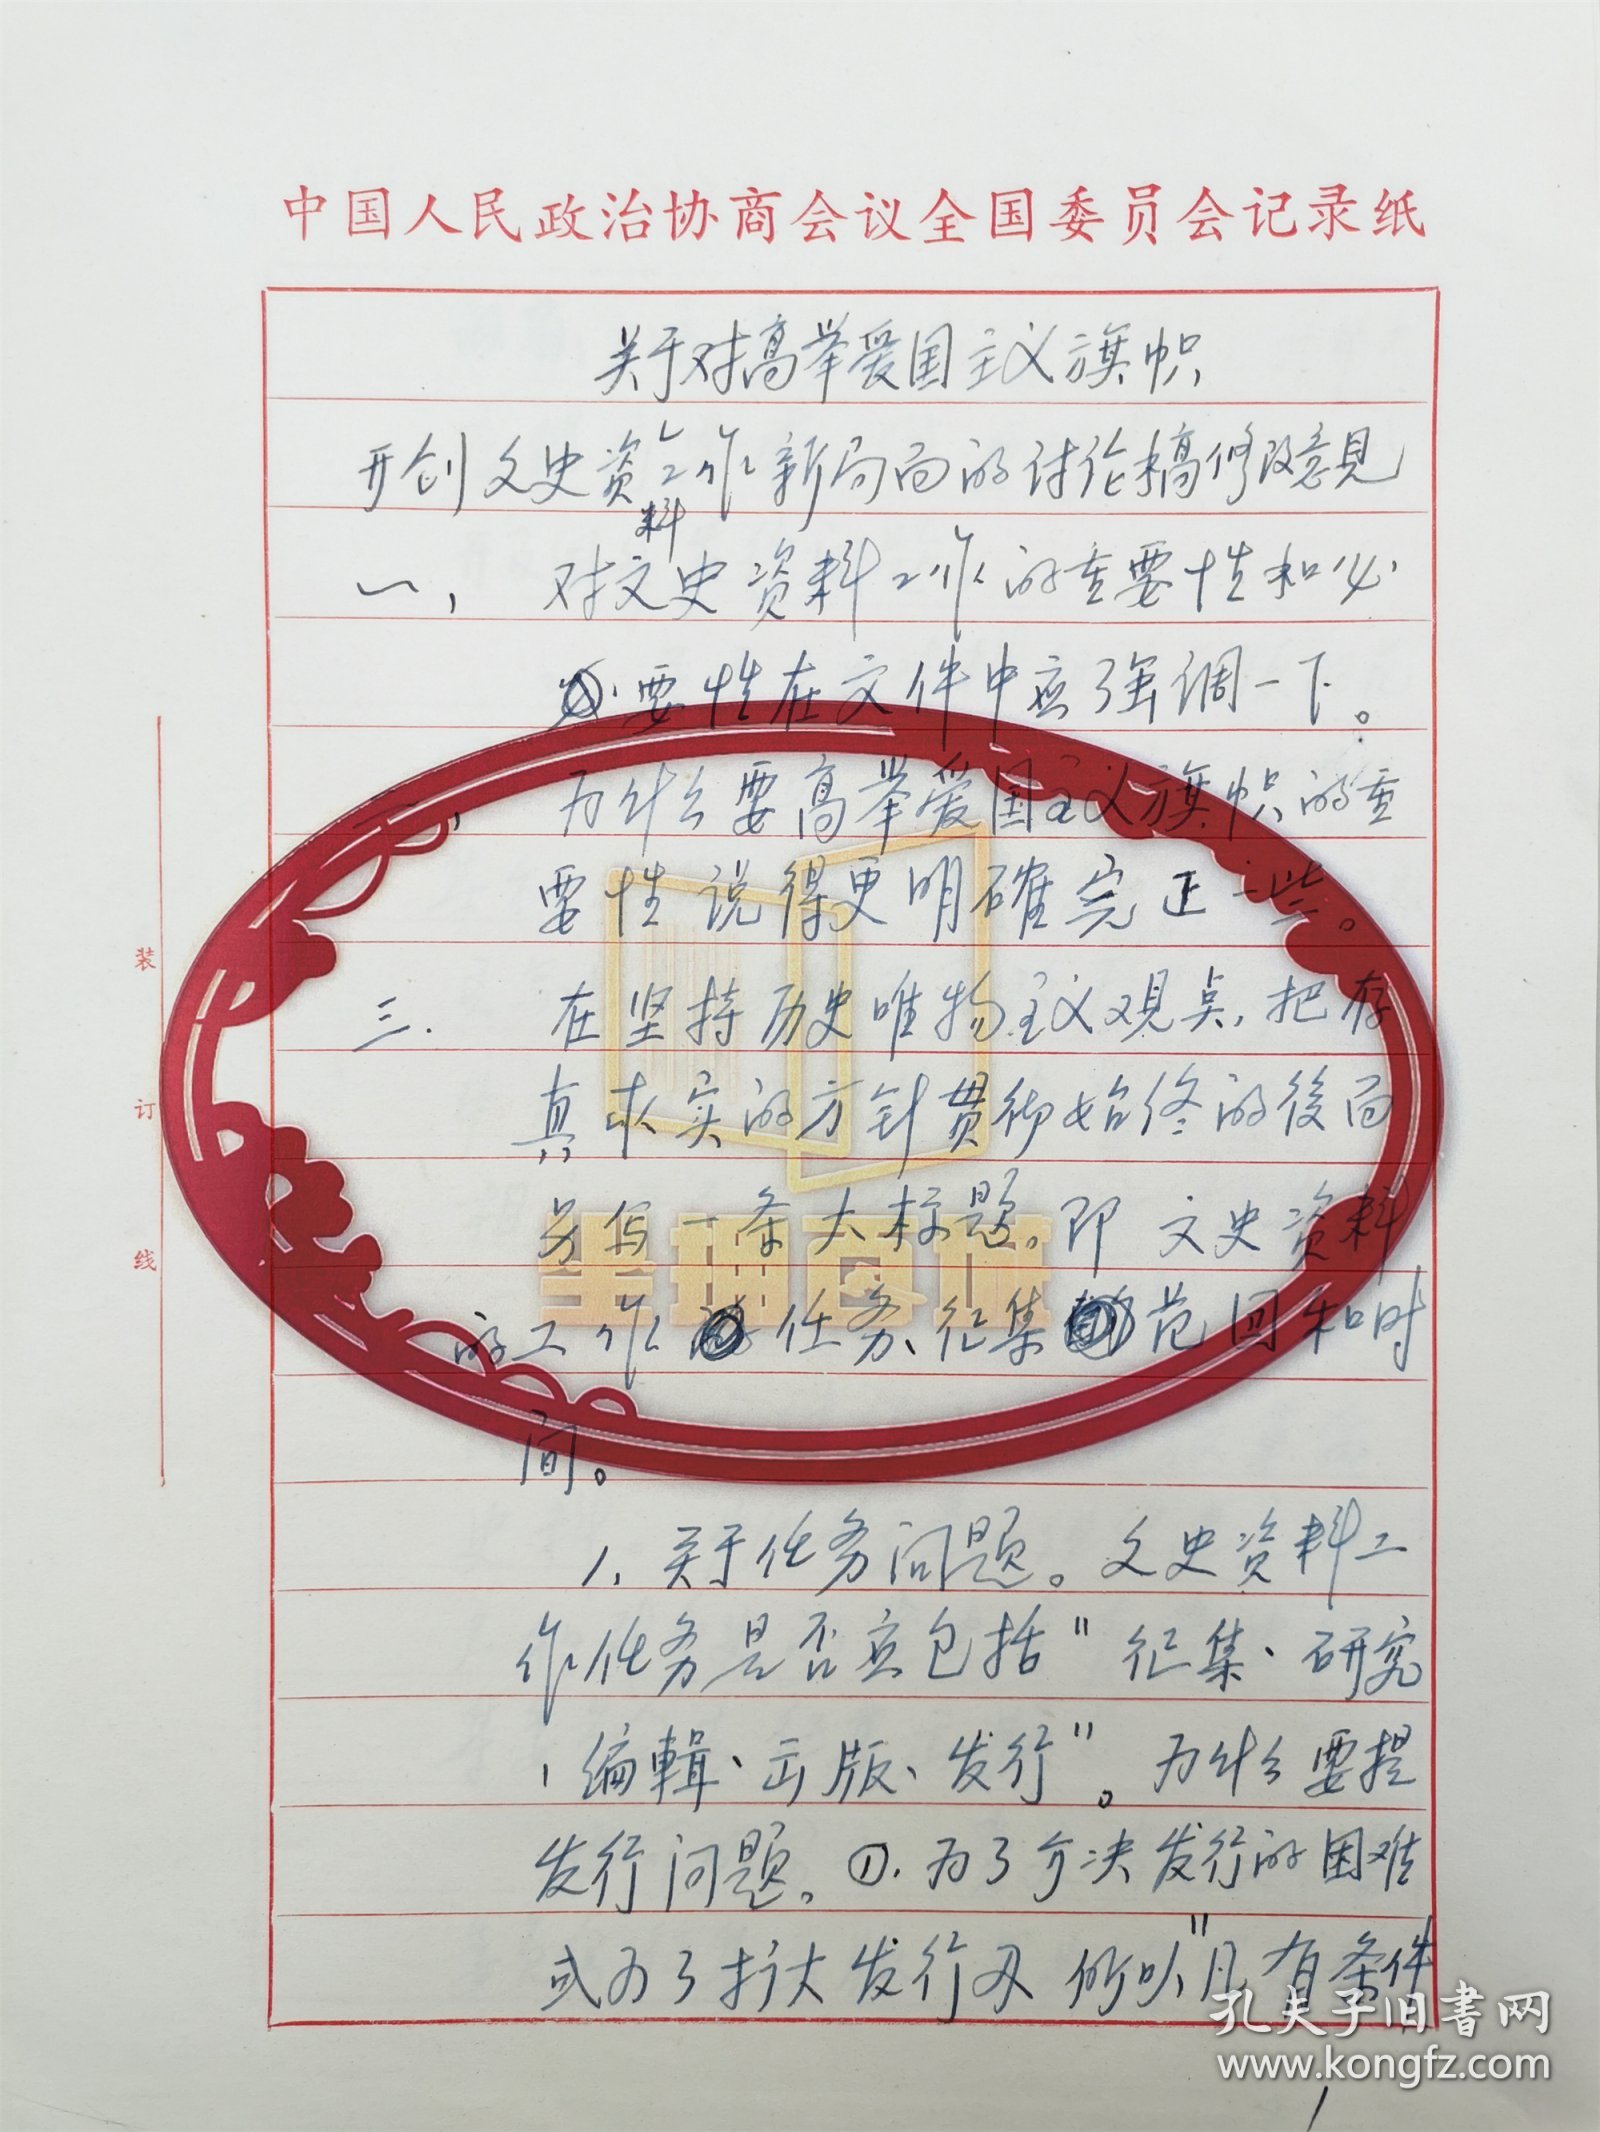 中国人民政治协商会议全国委员会记录纸
关于对高举爱国主义旗帜
开创文史资料工作新局面的讨论稿修改意见
一、对文史资料工作的重要性和必
要性在文件中应强调一下。
为什么要高举爱国主义旗帜的重
要性说得更明确完正一些。
三.在坚持历史唯物主义观点,把存
真求实的方针贯彻始终的後面
另写一条大标题。即文史资料
的工作任务、征集范回和时
间。
1、关于任务问题。文史资料工
作任务是否应包括"征集、研究
、编輯、出版、发行"。为什么要提
发行问题。①.为了介决发行的困难
或为了扩大发行 所以"凡有条件
装
订
线
孔夫子旧书网
www.kongfz.com
1